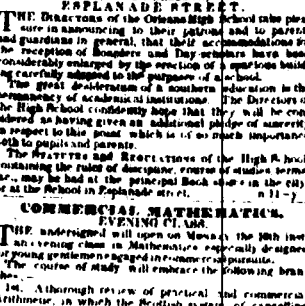 ESPLANADE STREET.
THE Directors of the Orleans High School take plea
sure in announcing to their patrons and to parents
and guardians in general, that their accommodations for
the reception of Boarders and Day scholars have been
considerably enlarged by the erection of a spacious build
ing carefully adapted to the purposes of a school.
The great desideratum of a southern education is the
permanency of Academical institutions. The Directors of
the High School confidently hope that they will be con
sidered as having given an additional pledge of
in respect to this point which is of so much importance
both to pupils and parents.
The STATUTES and REGULATIONS of the High School
containing the rules of discipline, course of studies terms
&c., may be had at the principal Book stores in the city
or at the School in Esplanade street.
COMMERCIAL MATHEMATICS.
EVENING CLASS.
THE undersigned will open on Monday the 10th inst
an evening class in Mathematics especially designed
for young gentlemen engaged in commercial pursuits.
The course of study will embrace the following bran
ches.
1st. A thorough review of practical and commercial
arithmetic, in which the system of